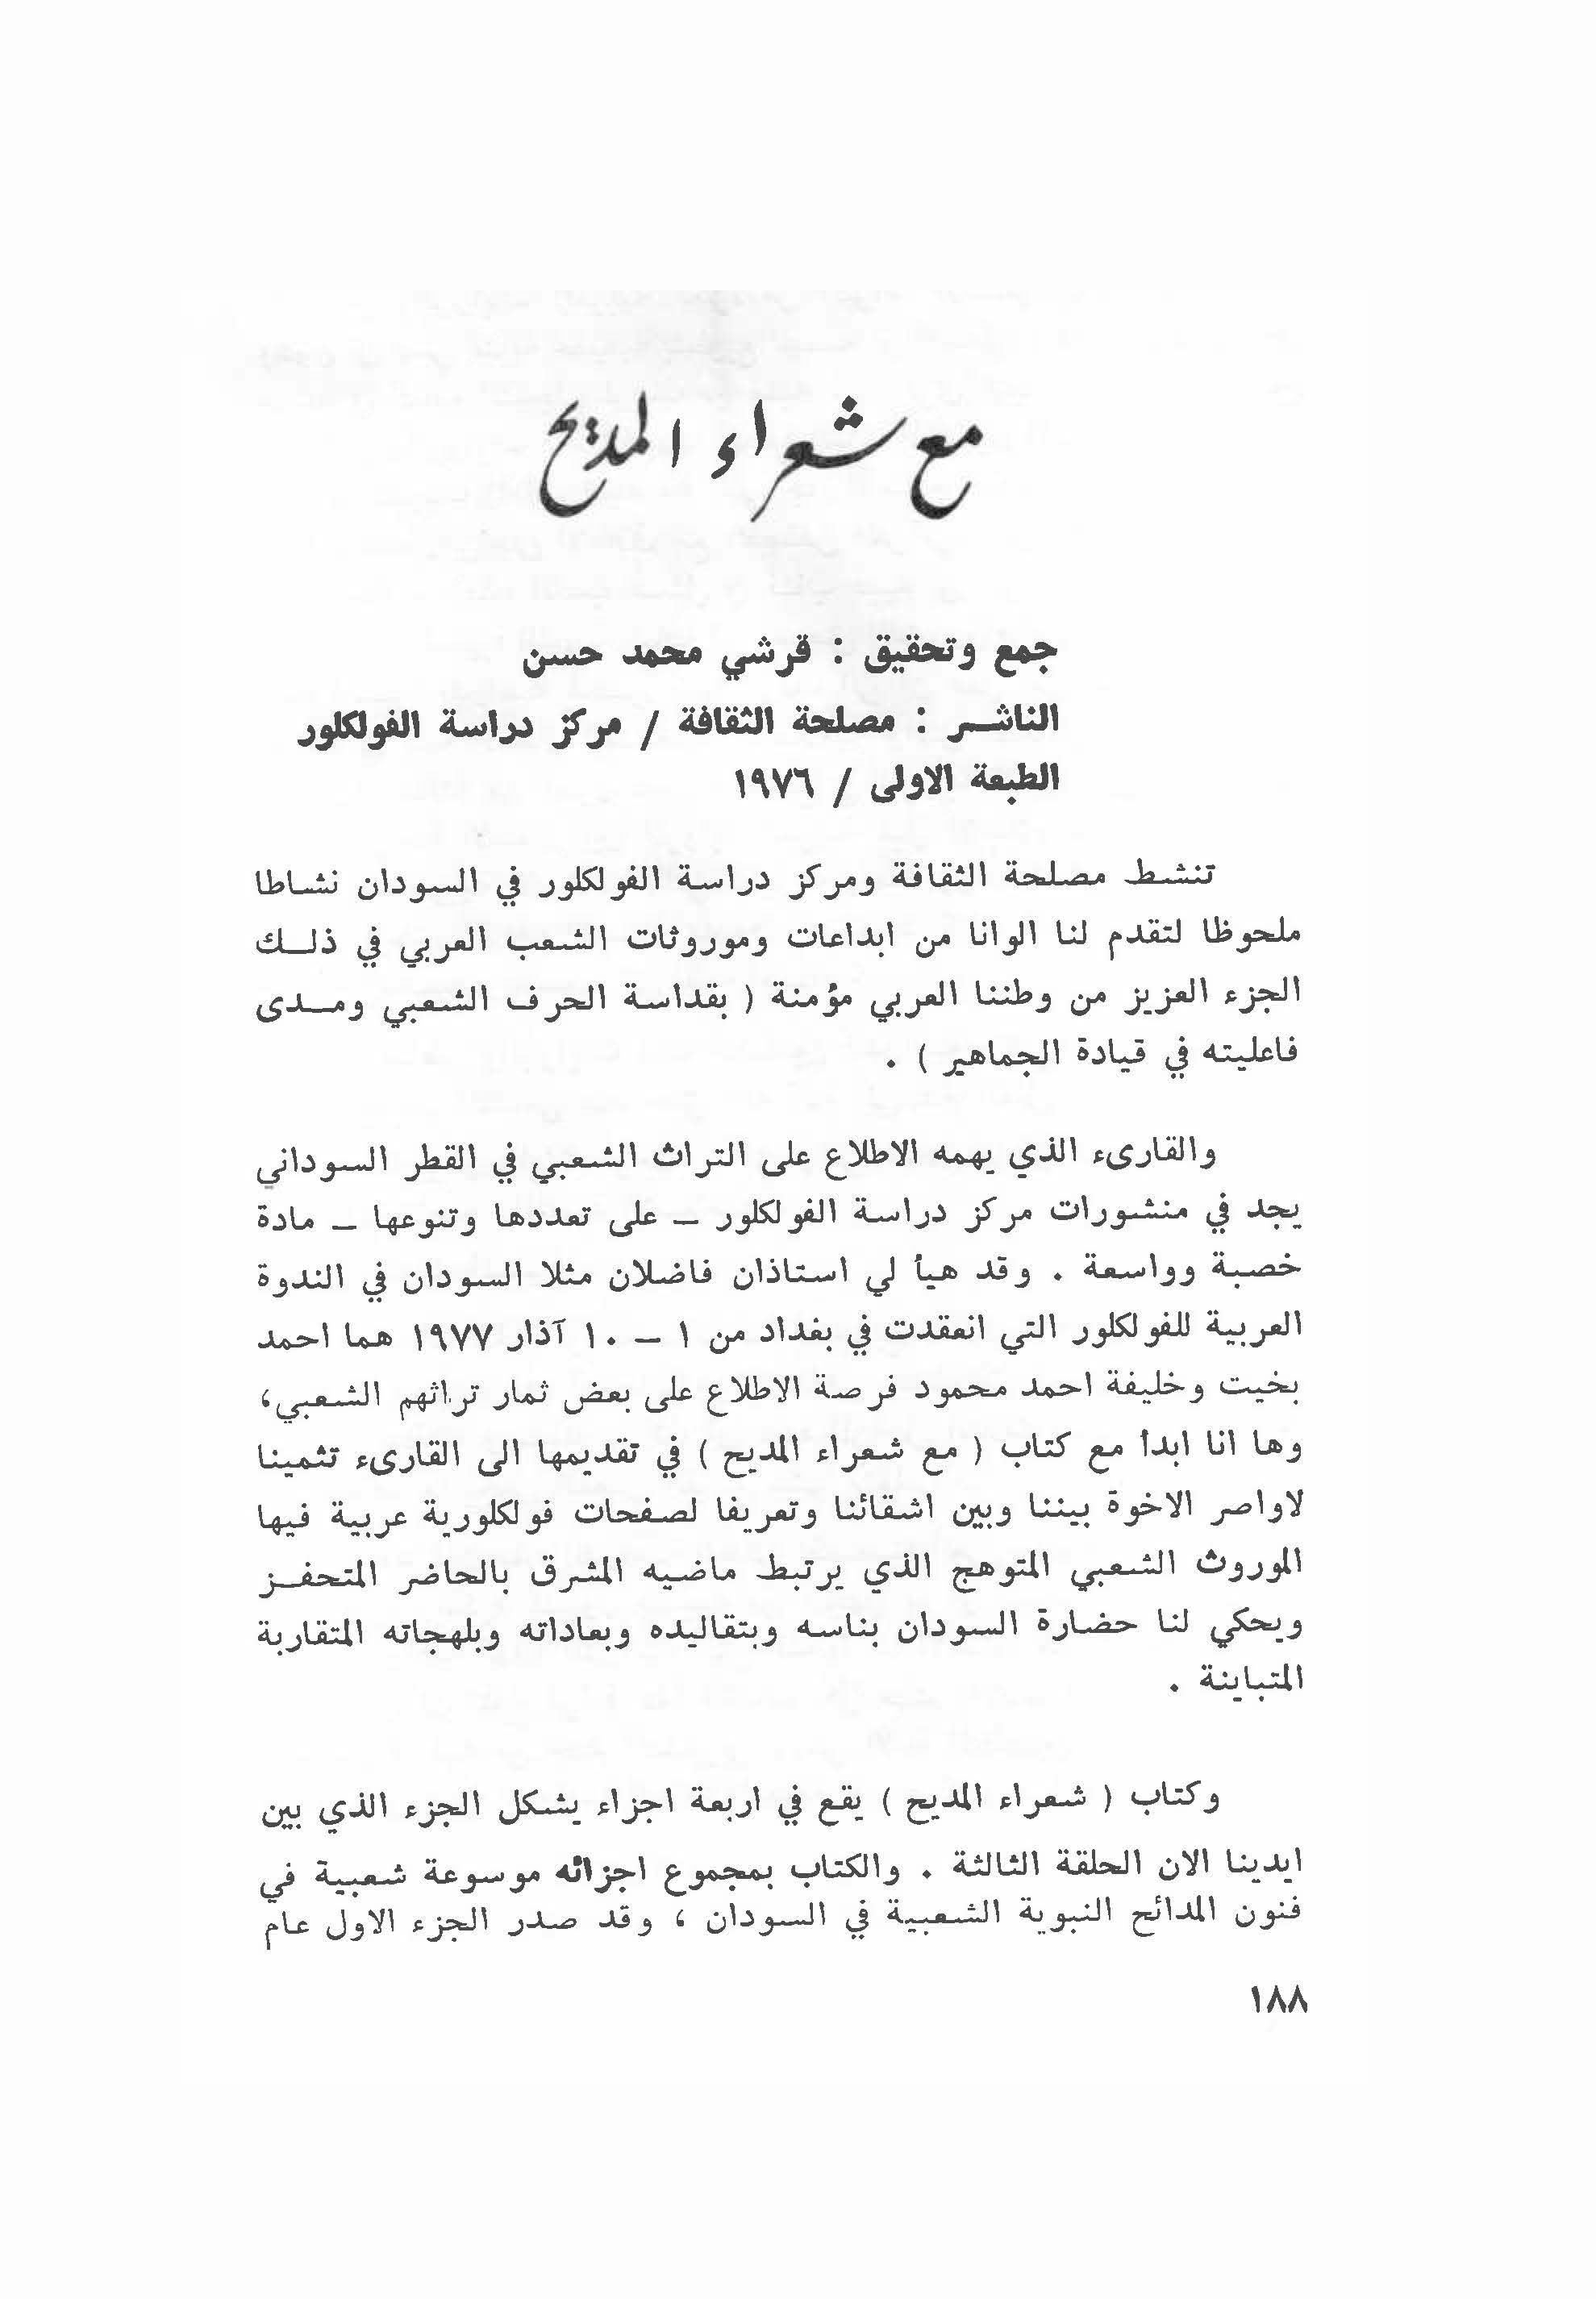 مع شعراء المديح
جمع وتحقيق : قرشي محمد حسن
الناشــر : مصلحة الثقافة / مركز دراسة الفولكلور
الطبعة الاولى / ١٩٧٦
تنشط مصلحة الثقافة ومركز دراسة الفولكلور في السودان نشاطا
ملحوظا لتقدم لنا الوانا من ابداعات وموروثات الشعب العربي في ذلــك
الجزء العزيز من وطننا العربي مؤمنة ( بقداسة الحرف الشعبي ومــدى
فاعليته في قيادة الجماهير ) .
والقارىء الذي يهمه الاطلاع على التراث الشعبي في القطر السوداني
يجد في منشورات مركز دراسة الفولكلور – على تعددها وتنوعها – مادة
خصبة وواسعة . وقد هيأ لي استاذان فاضلان مثلا السودان في الندوة
العربية للفولكلور التي انعقدت في بغداد من ١ – ١٠ آذار ١٩٧٧ هما احمد
بخيت وخليفة احمد محمود فرصة الاطلاع على بعض ثمار تراثهم الشعبي،
وها انا ابدأ مع كتاب ( مع شعراء المديح ) في تقديمها الى القارىء تثمينا
لاواصر الاخوة بيننا وبين اشقائنا وتعريفا لصفحات فولكلورية عربية فيها
الموروث الشعبي المتوهج الذي يرتبط ماضيه المشرق بالحاضر المتحفــز
ويحكي لنا حضارة السودان بناسه وبتقاليده وبعاداته وبلهجاته المتقاربة
المتباينة .
وكتاب ( شعراء المديح ) يقع في اربعة اجزاء يشكل الجزء الذي بين
ايدينا الان الحلقة الثالثة . والكتاب بمجموع اجزائه موسوعة شعبية في
فنون المدائح النبوية الشعبية في السودان ، وقد صدر الجزء الاول عام
١٨٨